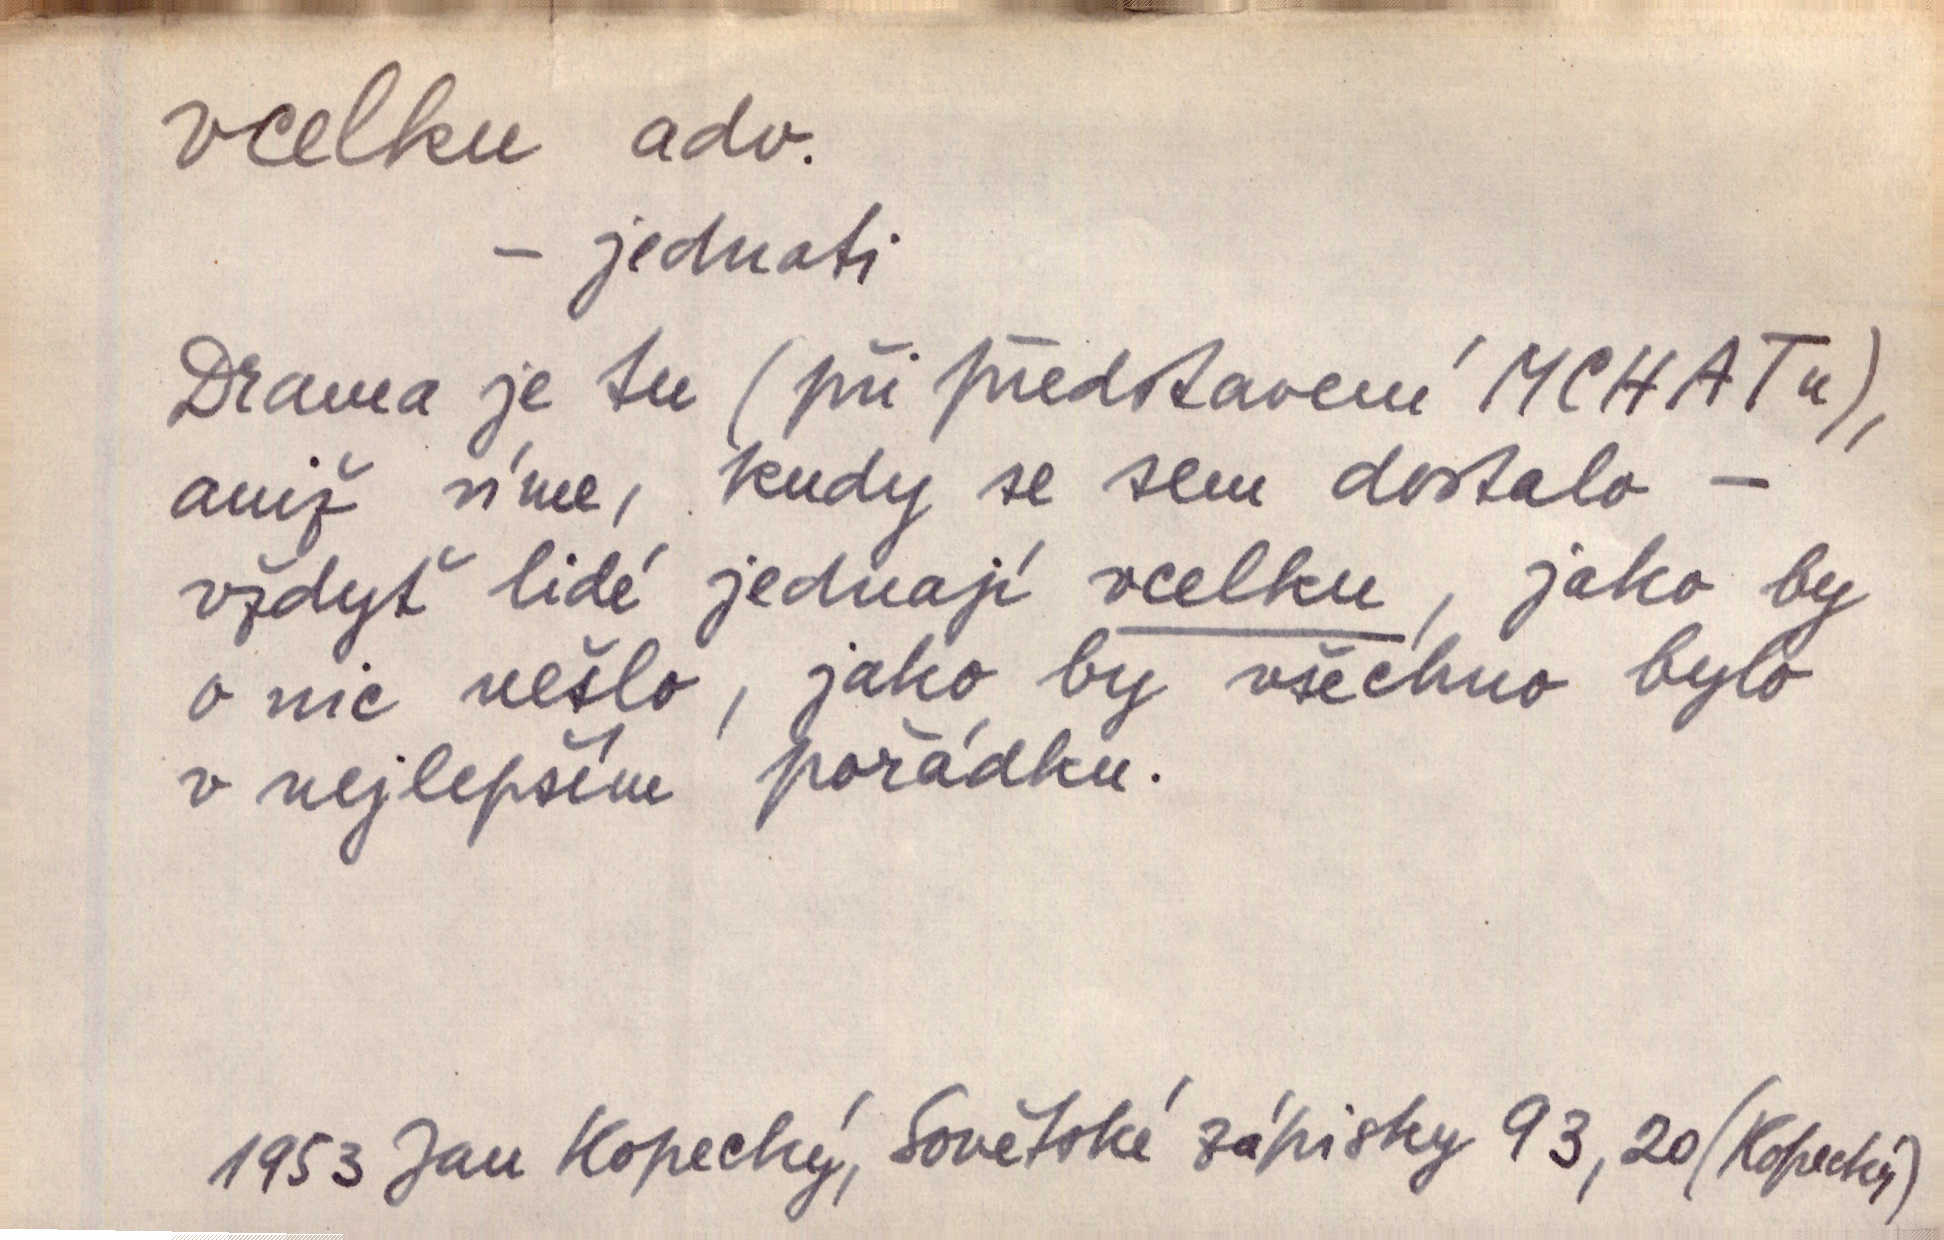 vcelku adv.
– jednati
Drama je tu (při představení MCHATu),
aniž víme, kudy se sem dostalo –
vždyť lidé jednají vcelku, jako by
o nic nešlo, jako by všechno bylo
v nejlepším pořádku.
1953 Jan Kopecký, Sovětské zápisky 93, 20 (Kopecký)